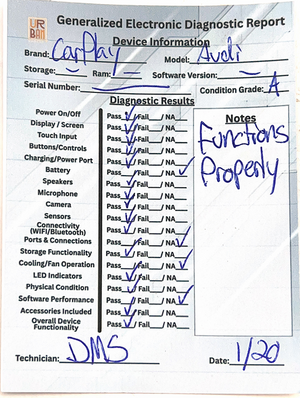 UR
BAN
Generalized Electronic Diagnostic Report
Device Information
Brand: CarPlay Model: Audi
Storage: — Ram: — Software Version: —
Serial Number: Condition Grade: A
Diagnostic Results
Power On/Off Pass ✓/ Fail / NA
Display / Screen Pass ✓/ Fail / NA
Touch Input Pass ✓/ Fail / NA
Buttons/Controls Pass ✓/ Fail / NA
Charging/Power Port Pass ✓/ Fail / NA
Battery Pass / Fail / NA ✓
Speakers Pass ✓/ Fail / NA
Microphone Pass ✓/ Fail / NA
Camera Pass ✓/ Fail / NA
Sensors Pass ✓/ Fail / NA
Connectivity (WIFI/Bluetooth) Pass ✓/ Fail / NA
Ports & Connections Pass / Fail / NA ✓
Storage Functionality Pass ✓/ Fail / NA
Cooling/Fan Operation Pass / Fail / NA ✓
LED Indicators Pass ✓/ Fail / NA
Physical Condition Pass ✓/ Fail / NA
Software Performance Pass / Fail / NA ✓
Accessories Included Pass ✓/ Fail / NA
Overall Device Functionality Pass ✓/ Fail / NA
Notes
Functions
Properly
Technician: DMS Date: 1/20